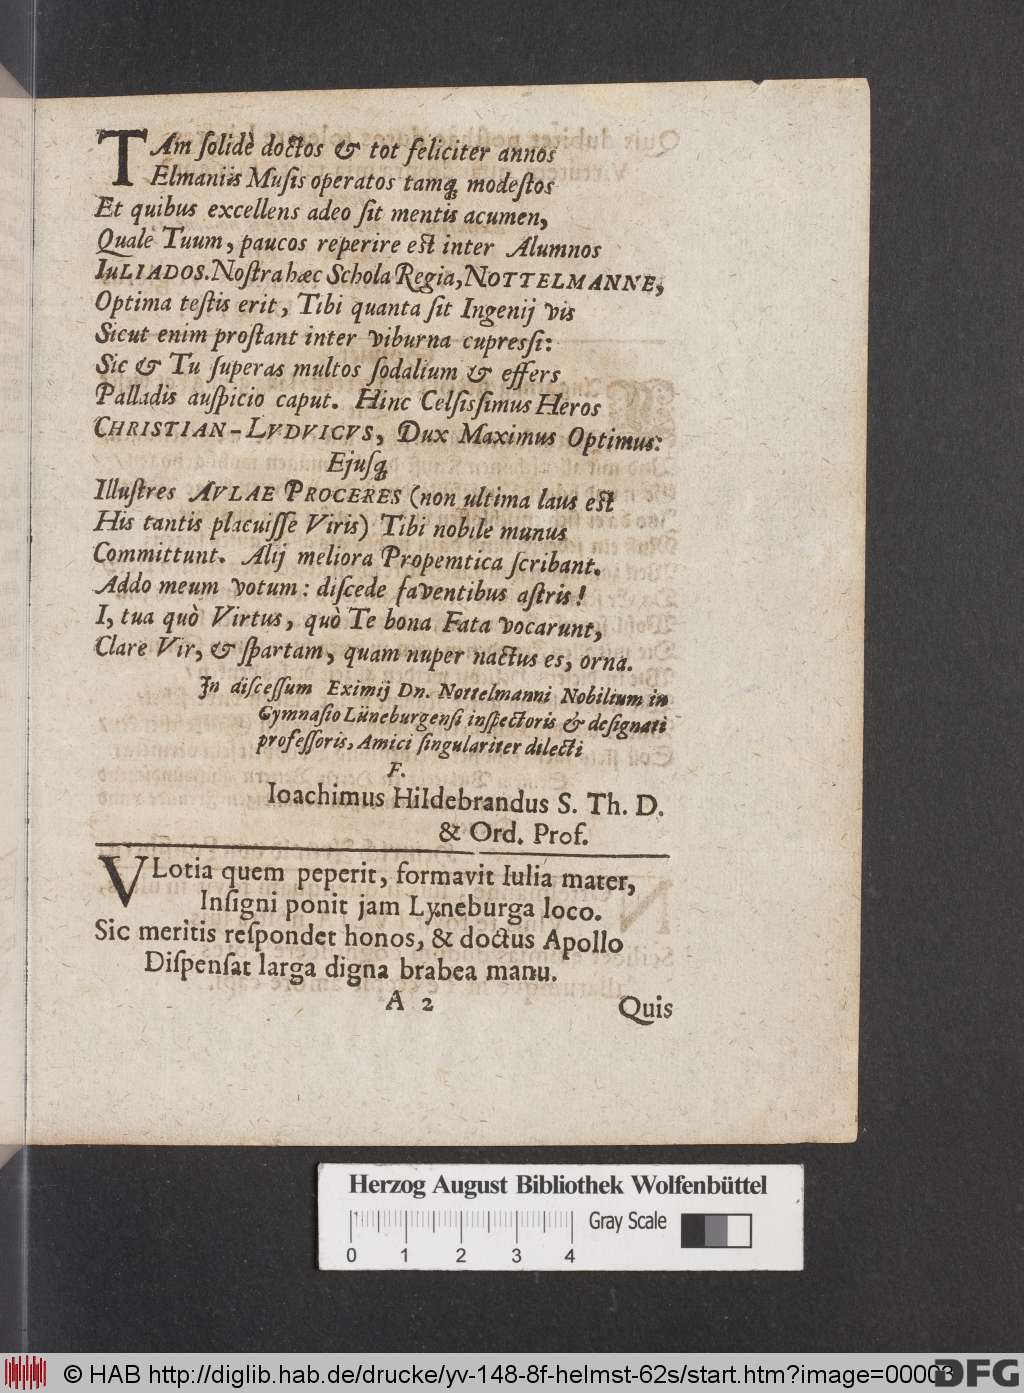 TAm ſolidè doctos & tot feliciter annos
Elmaniis Muſis operatos tamq́ modeſtos
Et quibus excellens adeo ſit mentis acumen,
Quale Tuum, paucos reperire eſt inter Alumnos
IULIADOS. Noſtra hæc Schola Regia, NOTTELMANNE,
Optima teſtis erit, Tibi quanta ſit Ingenij vis
Sicut enim proſtant inter viburna cupreſſi:
Sic & Tu ſuperas multos ſodalium & effers
Palladis auſpicio caput. Hinc Celſiſſimus Heros
CHRISTIAN-LVDVICVS, Dux Maximus Optimus:
Ejuſq́
Illuſtres AVLAE PROCERES (non ultima laus eſt
His tantis placuiſſe Viris) Tibi nobile munus
Committunt. Alij meliora Propemtica ſcribant.
Addo meum votum: diſcede faventibus aſtris!
I, tua quò Virtus, quò Te bona Fata vocarunt,
Clare Vir, & ſpartam, quam nuper nactus es, orna.
In diſceſſum Eximij Dn. Nottelmanni Nobilium in
Gymnaſio Lüneburgenſi inſpectoris & deſignati
profeſſoris, Amici ſingulariter dilecti
F.
Ioachimus Hildebrandus S. Th. D.
& Ord. Prof.
VLotia quem peperit, formavit Iulia mater,
Inſigni ponit jam Lyneburga loco.
Sic meritis reſpondet honos, & doctus Apollo
Diſpenſat larga digna brabea manu.
A 2 Quis
Herzog August Bibliothek Wolfenbüttel
Gray Scale
0 1 2 3 4
© HAB http://diglib.hab.de/drucke/yv-148-8f-helmst-62s/start.htm?image=00003
DFG